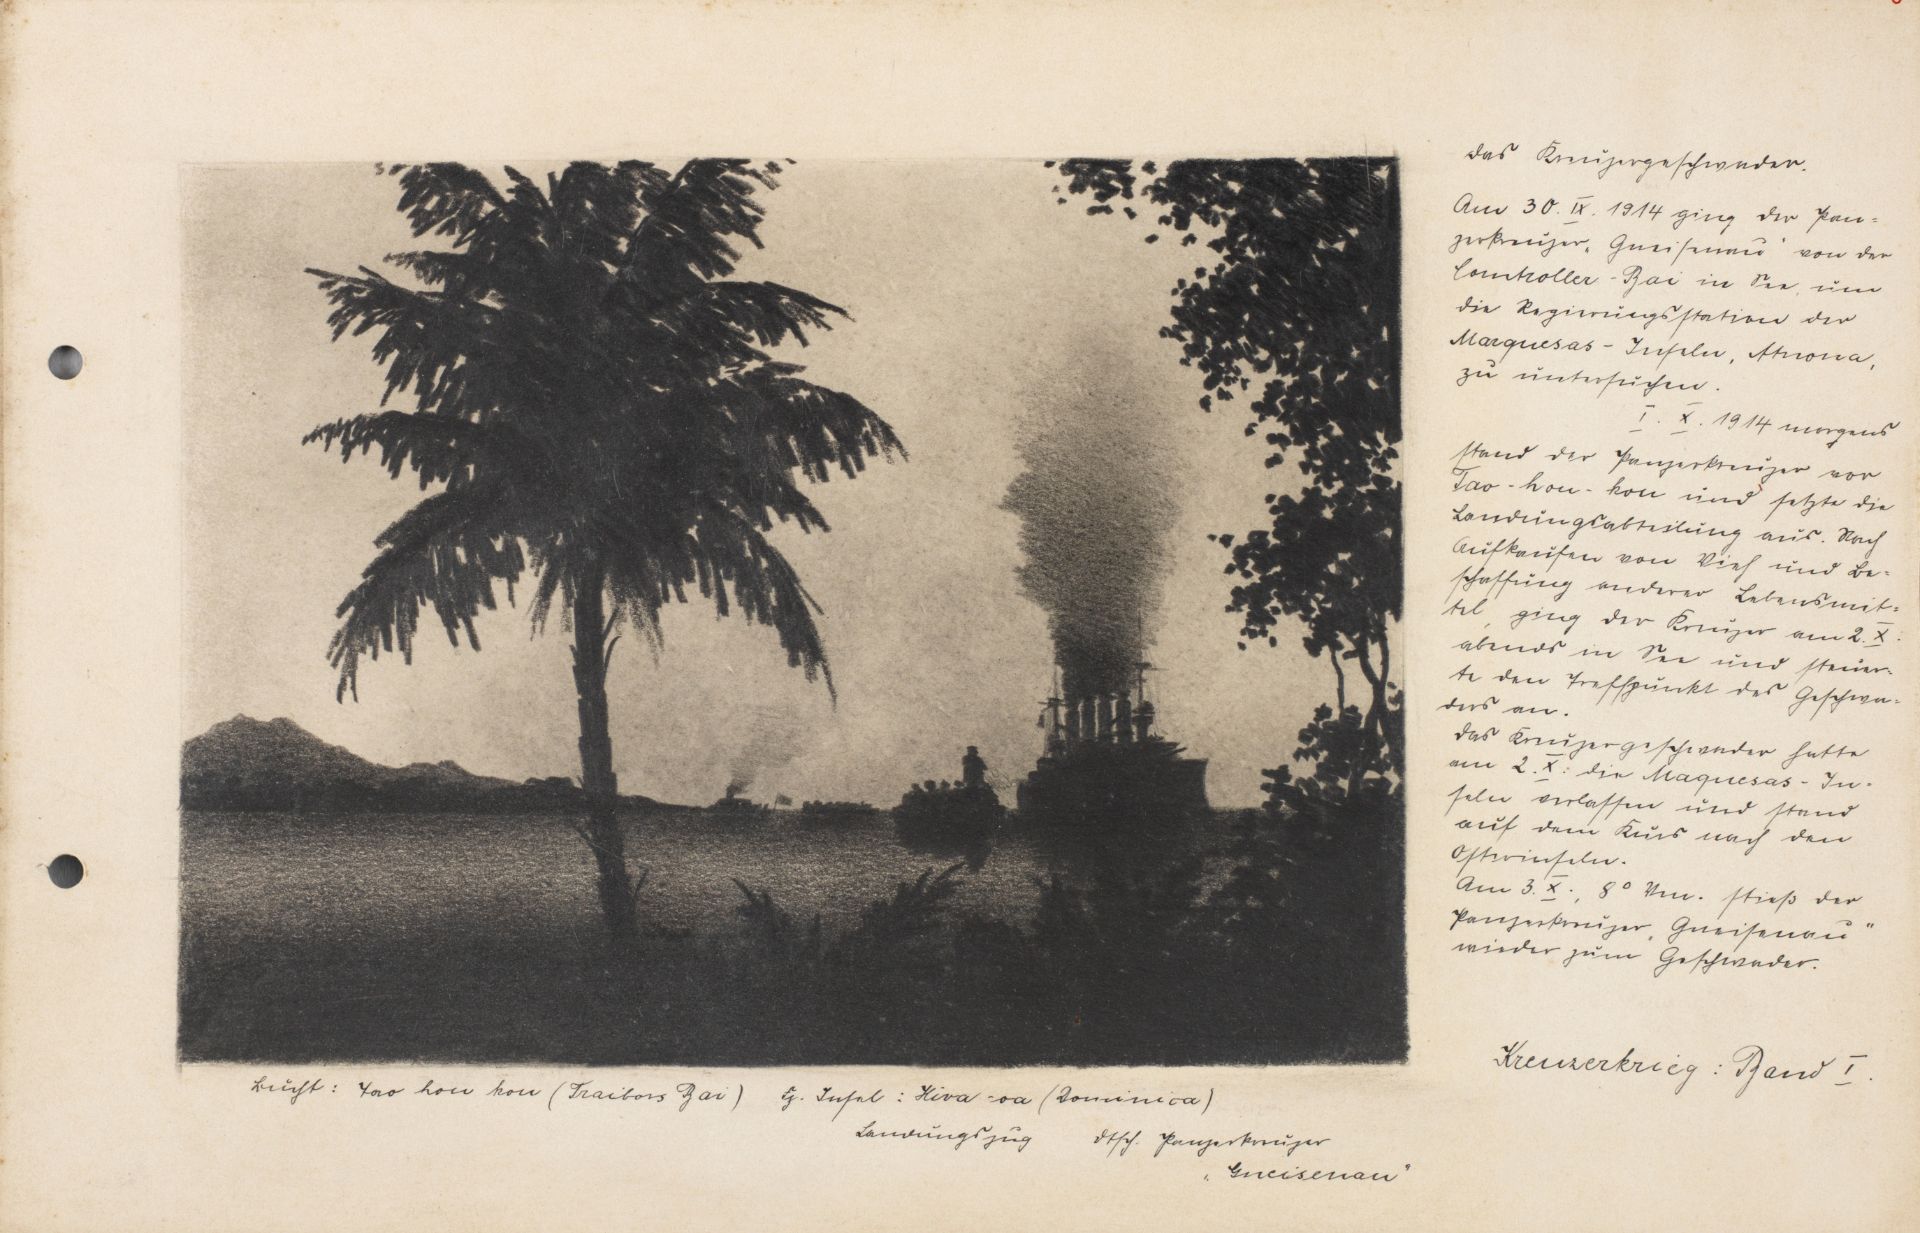 das Kreuzergeschwader.
Am 30. IX. 1914 ging der Pan=
zerkreuzer „Gneisenau" von der
Comtroller-Bai in See, um
die Regierungsstation der
Marquesas-Inseln, Atuona,
zu untersuchen.
I. X. 1914 morgens
stand der Panzerkreuzer vor
Tao-hou-kou und setzte die
Landungsabteilung aus. Nach
Aufkaufen von Vieh und Be=
schaffung anderer Lebensmit=
tel, ging der Kreuzer am 2. X.
abends in See und steuer=
te den Treffpunkt des Geschwa=
ders an.
Das Kreuzergeschwader hatte
am 2. X. die Maquesas-In=
seln verlassen und stand
auf dem Kurs nach den
Osterinseln.
Am 3. X., 8° Vm. stieß der
Panzerkreuzer „Gneisenau"
wieder zum Geschwader.
Kreuzerkrieg: Band I.
Bucht: Tao hou kou (Traitors Bai) Insel: Hiva-oa (Dominica)
Landungszug dtsch. Panzerkreuzer
„Gneisenau"